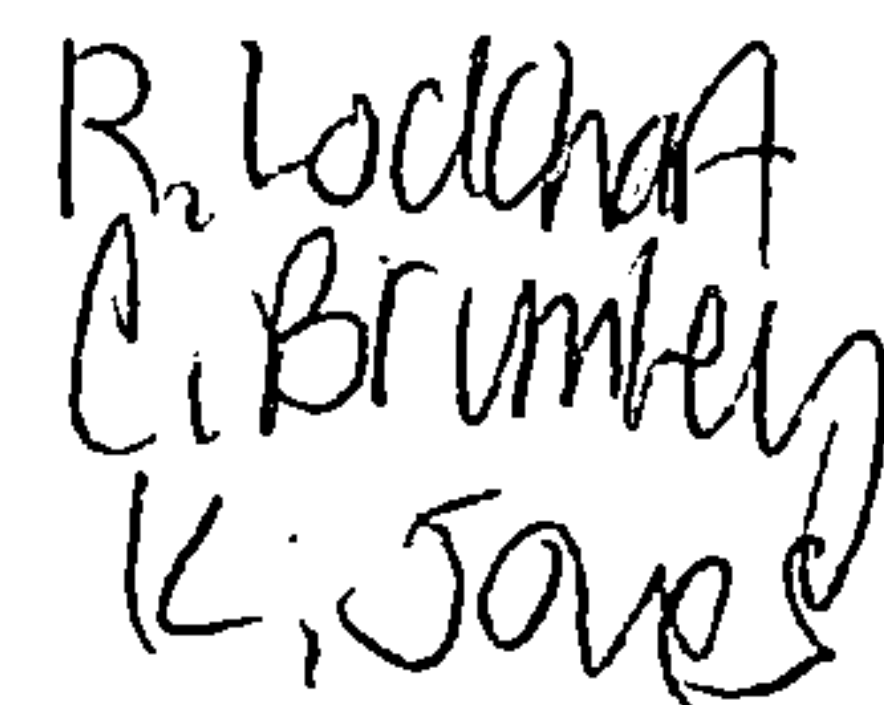 R. Lockhart
C. Brumley
K. Jones